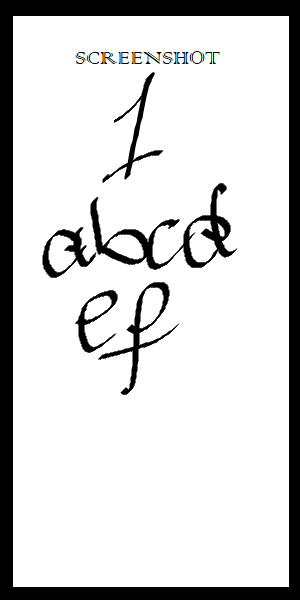 SCREENSHOT
1
abcd
ef